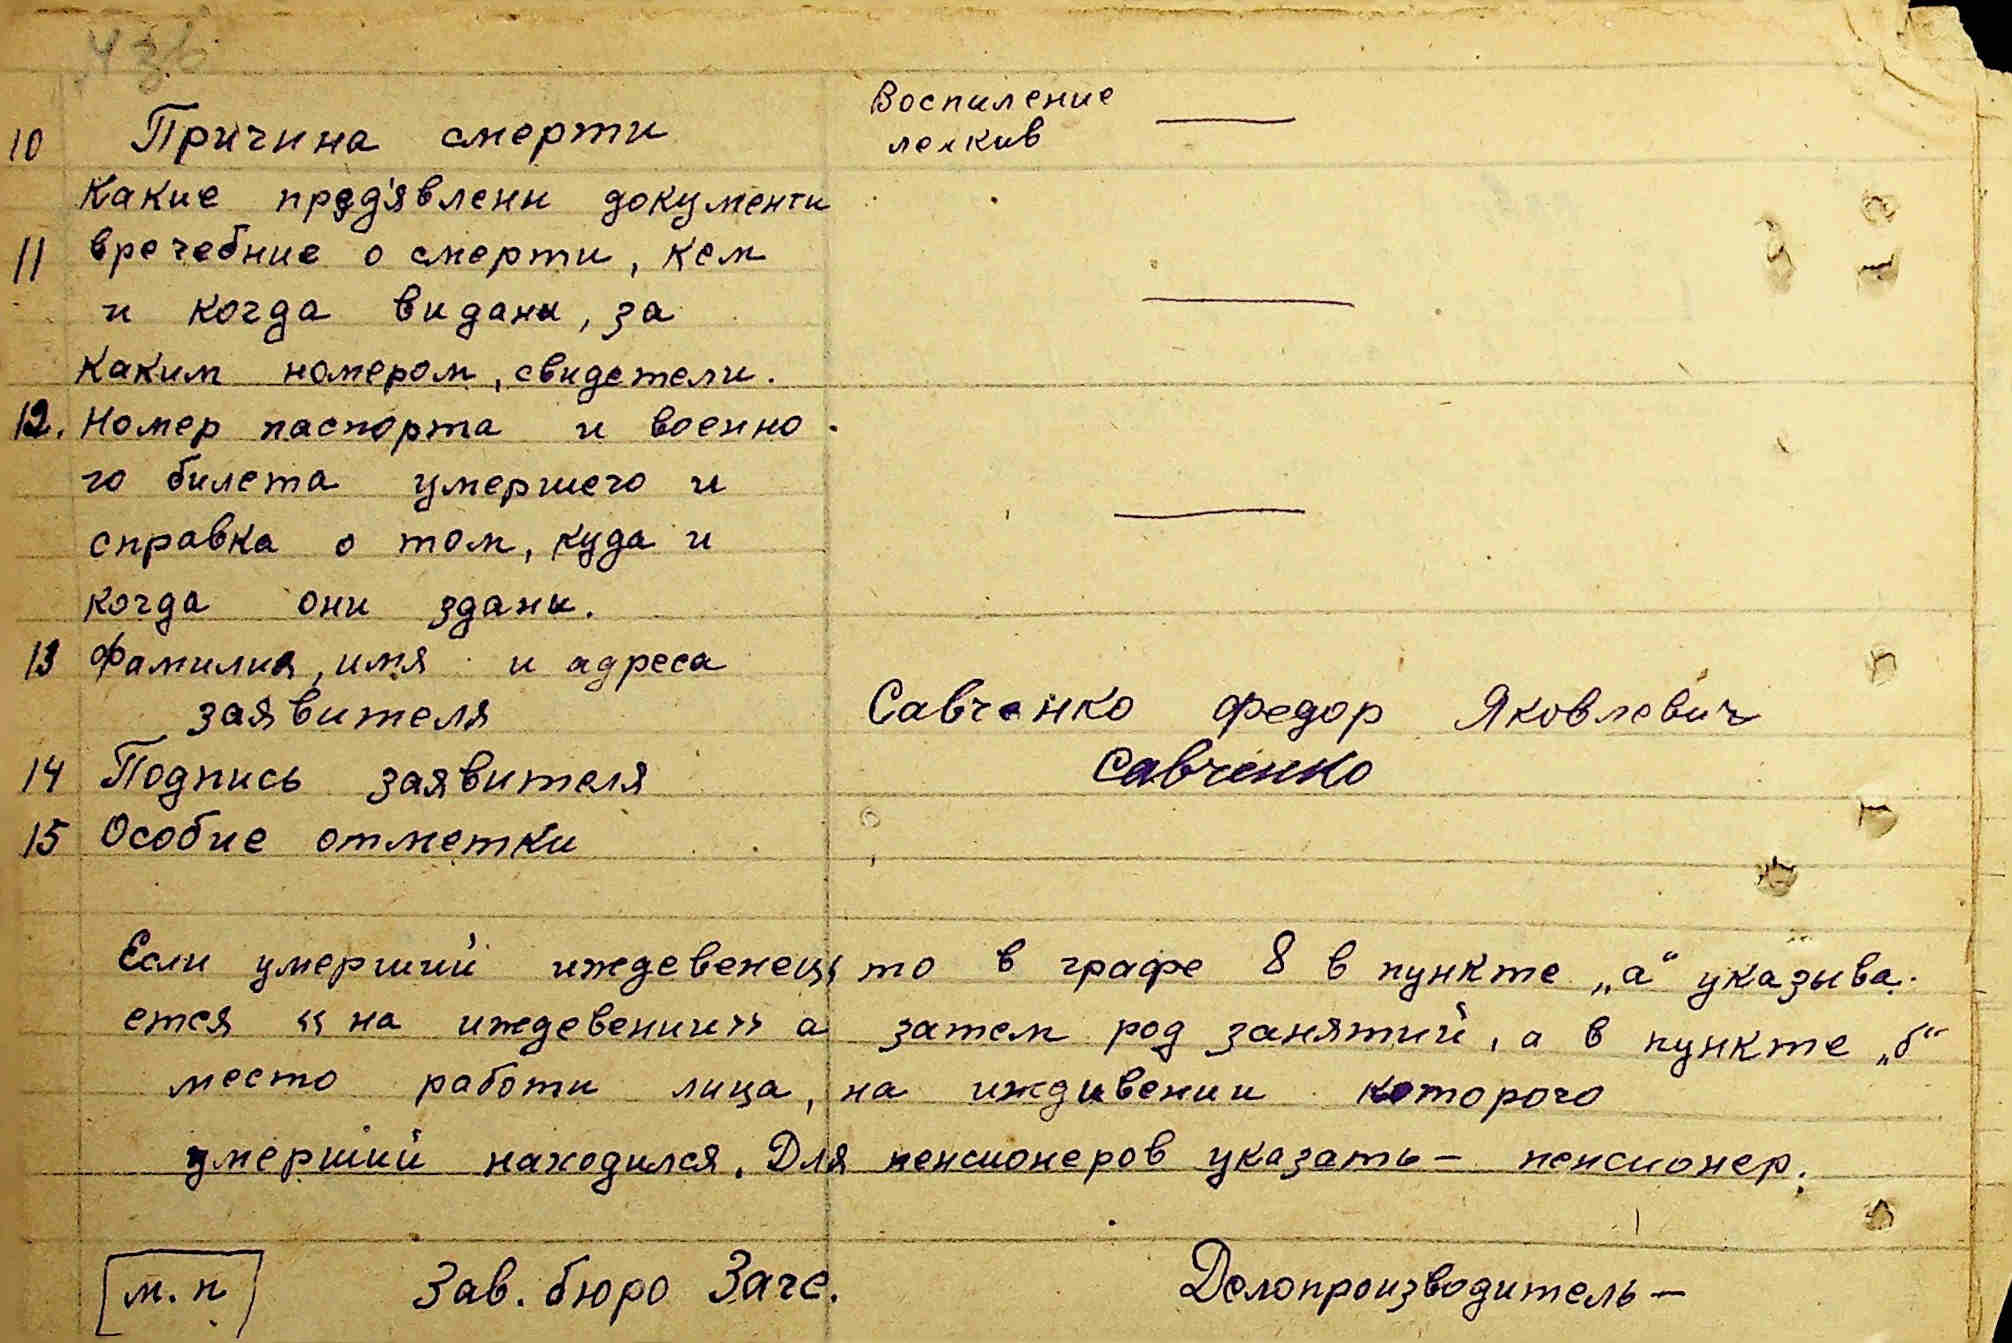 436
Воспиление
10 Причина смерти ——
легкив
Какие пред'явлени документи
11 вречебние о смерти, кем
и когда видани, за ——
каким номером, свидетели.
12. Номер паспорта и военно
го билета умершего и
справка о том, куда и ——
когда они здани.
13 Фамилия, имя и адреса
заявителя Савченко Федор Яковлевич
14 Подпись заявителя Савченко
15 Особие отметки
Если умерший иждевенец, то в графе 8 в пункте „а“ указыва-
ется «на иждевении» а затем род занятий, а в пункте „б“
место работи лица, на иждивении которого
умерший находился. Для пенсионеров указать – пенсионер.
м. п Зав. бюро Загс. Делопроизводитель –